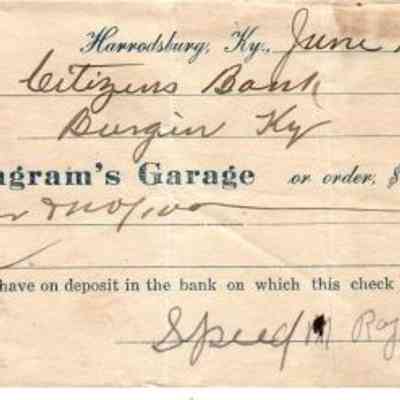 Harrodsburg, Ky., June
Citizens Bank
Burgin Ky
ngram's Garage or order, $
have on deposit in the bank on which this check
Speed M